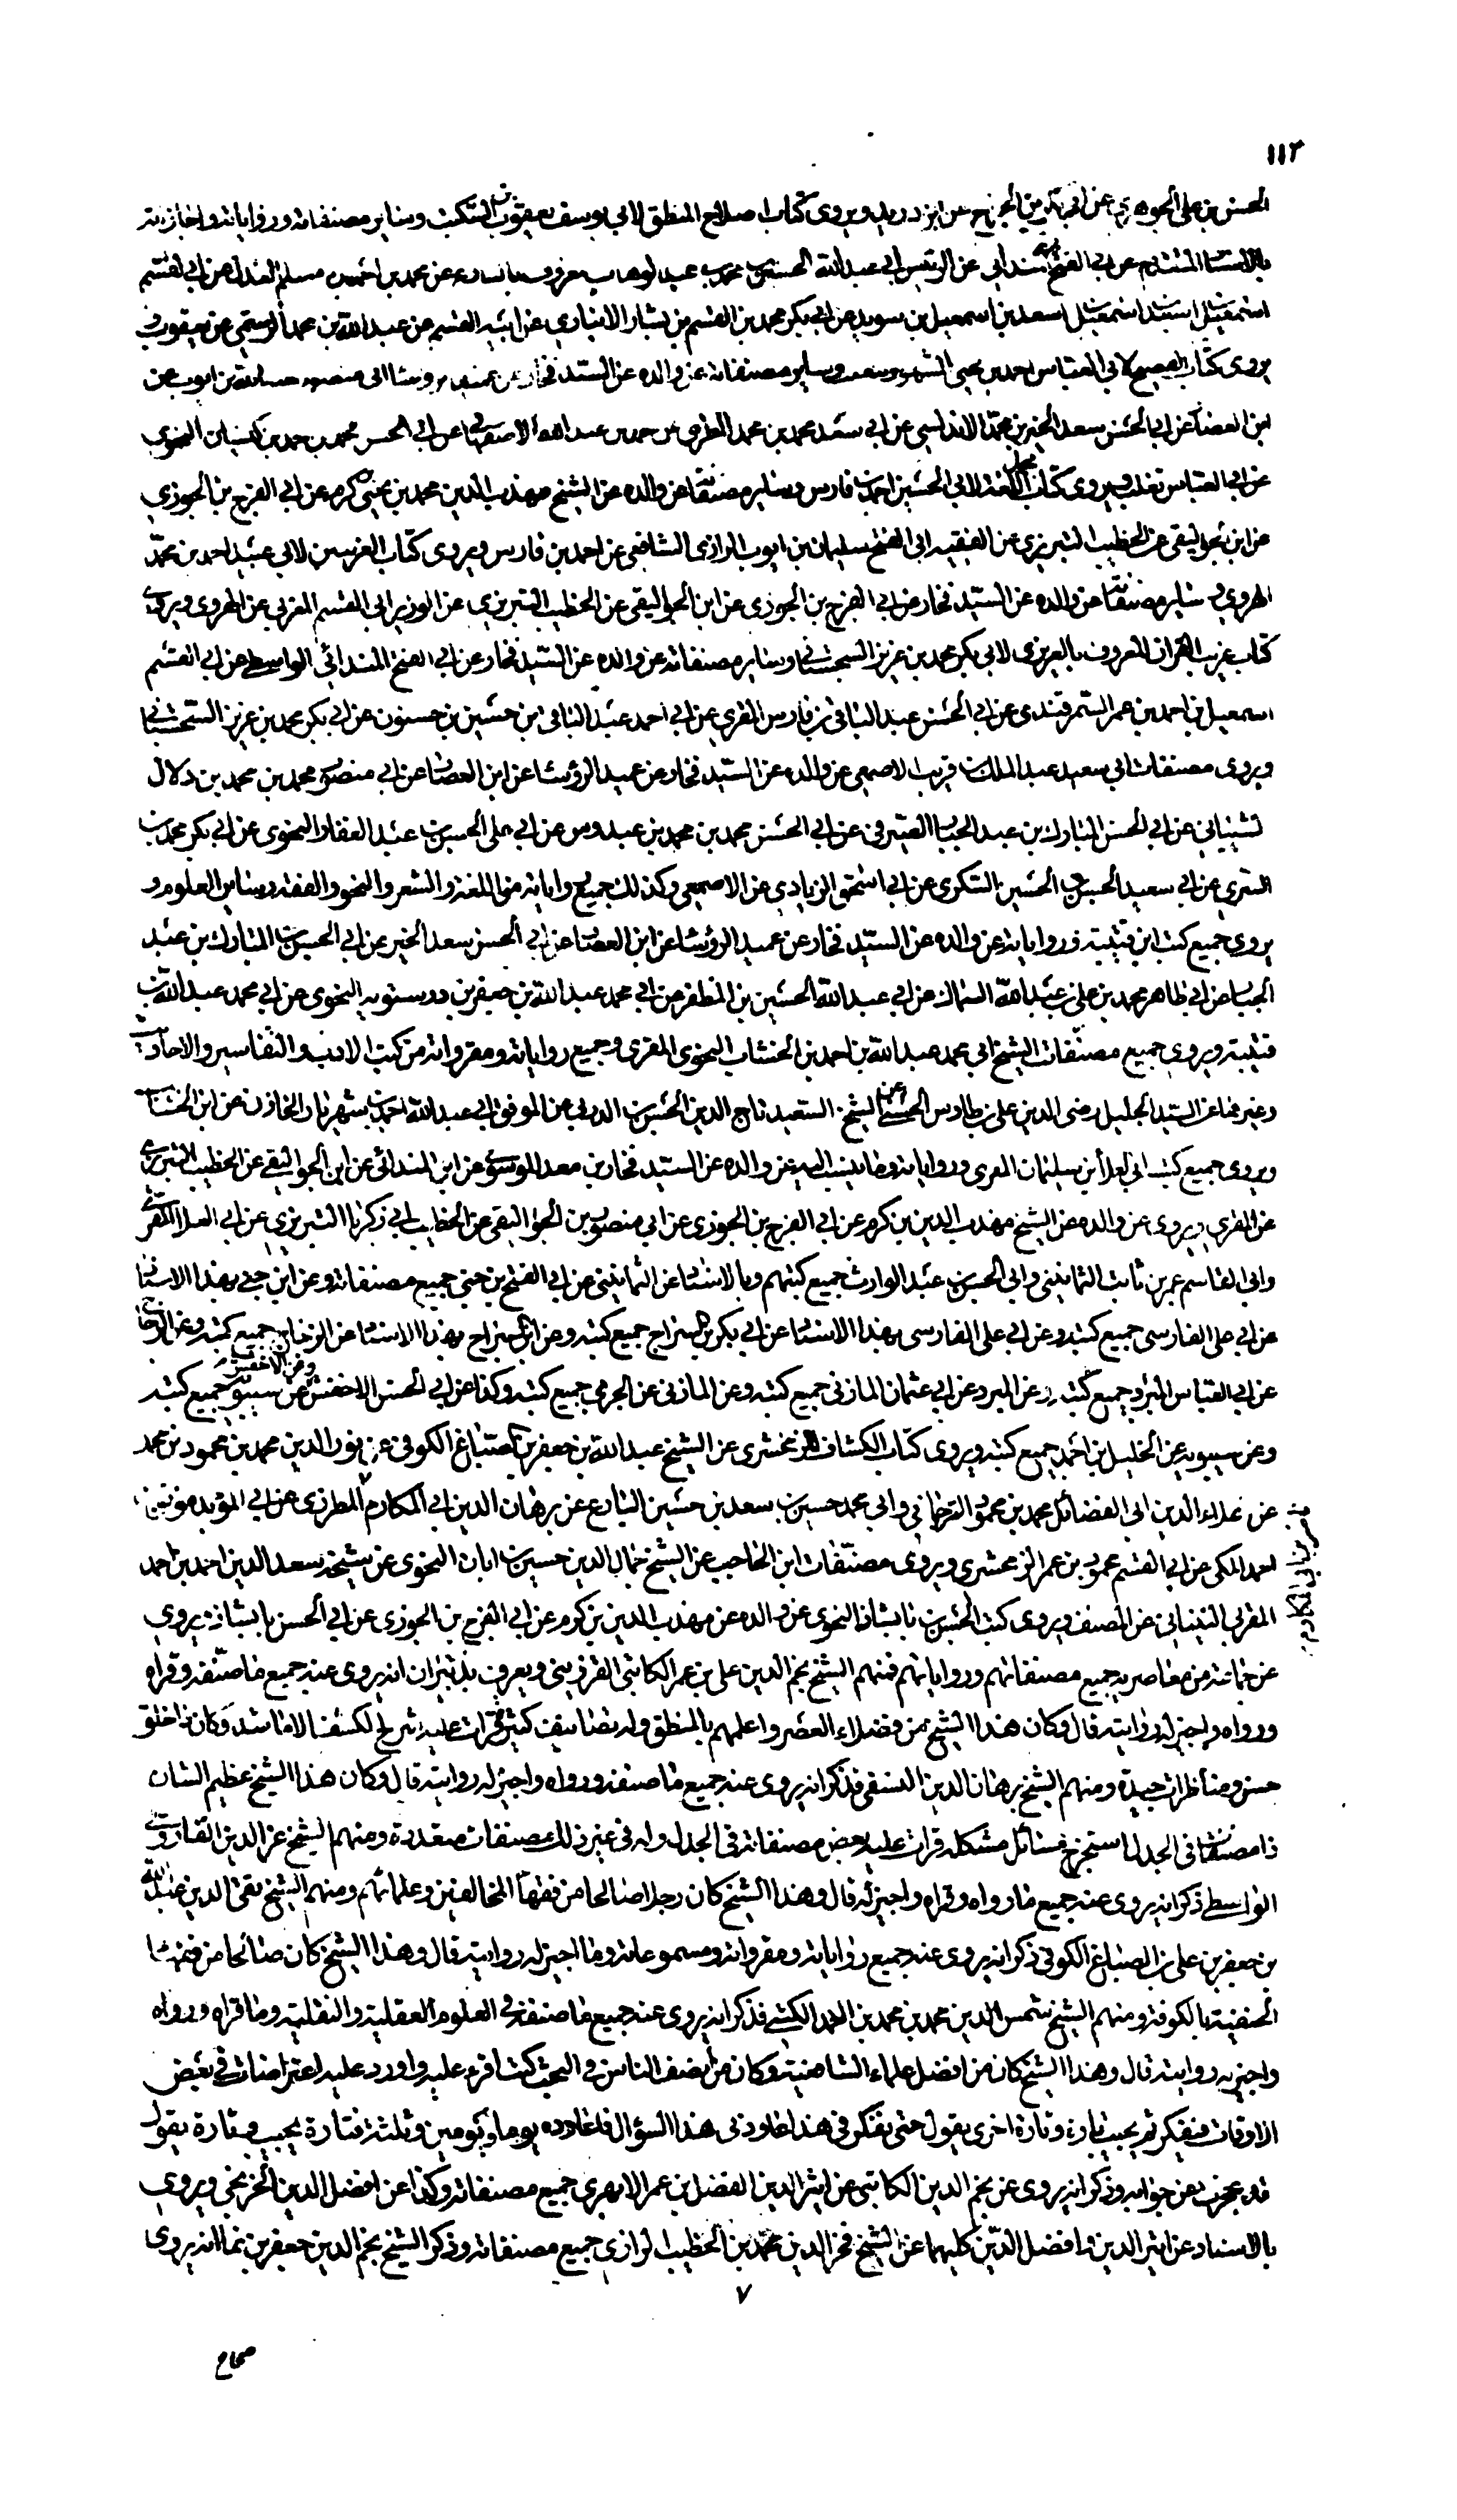 ١١٢
الحسن بن علي الجوهري عن ابي بكر بن الجراح عن ابن دريد ويروى كتاب اصلاح المنطق لابي يوسف يعقوب بن السكيت وساير مصنفاته ورواياته واجازيته
بالاسناد المتقدم عن ابي الفتح المندابي عن الرئيس ابي عبد الله الحسين بن محمد بن عبد الوهاب عن محمد بن احمد بن مسلم المعدل عن ابي القسم
اسمعيل بن اسعد بن اسمعيل بن سويد عن ابي بكر محمد بن القسم بن بشار الانباري عن ابيه القسم عن عبد الله بن محمد الرستمي عن يعقوب و
يروى كتاب الفصيح لابي العباس احمد بن يحيى الشهير بثعلب وساير مصنفاته عن والده عن السيد فخار عن عميد الرؤسا ابي منصور هبة الله بن ايوب عن
ابن العصا عن ابي الحسن سعد الخير بن محمد الاندلسي عن ابي سعد محمد بن محمد المطرز عن احمد بن عبد الله الاصفهاني عن ابي الحسن محمد بن احمد بن كيسان النحوي
عن ابي العباس ثعلب ويروى كتاب مجمل اللغة لابي الحسين احمد بن فارس وساير مصنفاته عن والده عن الشيخ مهذب الدين محمد بن يحيى بن كرم عن ابي الفرج بن الجوزي
عن ابن الجواليقي عن الخطيب التبريزي عن الفقيه ابي الفتح سليمان بن ايوب الرازي الشافعي عن احمد بن فارس ويروى كتاب الغريبين لابي عبيد احمد بن محمد
الهروي وساير مصنفاته عن والده عن السيد فخار عن ابي الفرج بن الجوزي عن ابن الجواليقي عن الخطيب التبريزي عن الوزير ابي القسم المغربي عن الهروي ويروى
كتاب غريب القران المعروف بالعزيزي لابي بكر محمد بن عزيز السجستاني وساير مصنفاته عن والده عن السيد فخار عن ابي الفتح المندائي الواسطي عن ابي القسم
اسمعيل بن احمد بن عمر السمرقندي عن ابي الحسن عبد الباقي بن فارس المقري عن ابي احمد عبد الباقي بن حسين بن حسنون عن ابي بكر محمد بن عزيز السجستاني
ويروى مصنفات ابي سعيد عبد الملك بن قريب الاصمعي عن والده عن السيد فخار عن عميد الرؤسا عن ابن العصا عن ابي منصور محمد بن محمد بن دلال
الشيباني عن ابي الحسن المبارك بن عبد الجبار الصيرفي عن ابي الحسن محمد بن محمد بن عبدوس عن ابي علي الحسن بن عبد الغفار النحوي عن ابي بكر محمد بن
السري عن ابي سعيد الحسن بن الحسين السكري عن ابي اسحق الزيادي عن الاصمعي وكذلك جميع رواياته من اللغة والشعر والنحو والفقه وساير العلوم و
يروى جميع كتب ابن قتيبة ورواياته عن والده عن السيد فخار عن عميد الرؤسا عن ابن العصا عن ابي الحسن سعد الخير عن ابي الحسين المبارك بن عبد
الجبار عن ابي طاهر محمد بن علي بن عبد الله السماك عن ابي عبد الله الحسين بن المظفر عن ابي محمد عبد الله بن جعفر بن درستويه النحوي عن ابي محمد عبد الله بن
قتيبة ويروى جميع مصنفات الشيخ ابي محمد عبد الله بن احمد بن احمد بن الخشاب النحوي المقري وجميع رواياته ومقرواته من كتب الادب والتفاسير والاحاديث
وغيرها عن السيد الجليل رضي الدين علي بن طاوس الحسني عن الشيخ السعيد تاج الدين الحسن بن الدربي عن الموفق ابي عبد الله احمد بن شهريار الخازن عن ابن الخشاب
ويروى جميع كتب ابي العلا بن سليمان المعري ورواياته وما ينسب اليه عن والده عن السيد فخار بن معد الموسوي عن ابن المندائي عن ابن الجواليقي عن الخطيب التبريزي
عن المعري ويروى عن والده عن الشيخ مهذب الدين بن كرم عن ابي الفرج بن الجوزي عن ابي منصور بن الجواليقي عن الخطيب ابي زكريا التبريزي عن ابي العلا المعري
وابي القاسم عمر بن ثابت الثمانيني وابي الحسن بن عبد الوارث جميع كتبهم وبالاسناد عن الثمانيني عن ابي الفتح بن جني جميع مصنفاته وعن ابن جني بهذا الاسناد
عن ابي علي الفارسي جميع كتبه وعن ابي علي الفارسي بهذا الاسناد عن ابي بكر بن السراج جميع كتبه وعن ابن السراج بهذا الاسناد عن الزجاج جميع كتبه وعن الزجاج
عن ابي العباس المبرد جميع كتبه وعن المبرد عن ابي عثمان المازني جميع كتبه وعن المازني عن الجرمي جميع كتبه وكذا عن ابي الحسن الاخفش وعن الاخفش عن سيبويه جميع كتبه
وعن سيبويه عن الخليل بن احمد جميع كتبه ويروى كتاب الكشاف للزمخشري عن الشيخ عبد الله بن جعفر بن الصباغ الكوفي عن نور الدين محمد بن محمود بن محمد
عن علاء الدين ابي الفضائل محمد بن محمود الترجماني وابي محمد حسين بن سعد بن حسين البارع عن برهان الدين ابي المكارم المطرزي عن ابي المؤيد موفق بن
احمد المكي عن ابي القسم محمود بن عمر الزمخشري ويروى مصنفات ابن الحاجب عن الشيخ جمال الدين حسين بن ابان النحوي عن شيخه سعد الدين احمد بن احمد
المغربي البيناني عن المصنف ويروى كتب الحسن بن بابشاذ النحوي عن والده عن مهذب الدين بن كرم عن ابي الفرج بن الجوزي عن ابي الحسن بابشاذ ويروى
عن جماعة من معاصريه جميع مصنفاتهم ورواياتهم فمنهم الشيخ نجم الدين علي بن عمر الكاتبي القزويني ويعرف بدبيران انه يروى عنه جميع ما صنفه وقراه
ورواه واجيز له روايته قال وكان هذا الشيخ من فضلاء العصر واعلمهم بالمنطق وله تصانيف كثيرة قرات عليه شرح الكشف الا ما شذ وكان ذا خلق
حسن ومناظرات جيدة ومنهم الشيخ برهان الدين النسفي فذكر انه يروى عنه جميع ما صنفه ورواه واجيز له روايته قال وكان هذا الشيخ عظيم الشان
ذا مصنفات في الجدل استخرج مسائل مشكلة قرات عليه بعض مصنفاته في الجدل وله في غير ذلك مصنفات متعددة ومنهم الشيخ عز الدين الفاروثي
الواسطي ذكر انه يروى عنه جميع ما رواه وقراه واجيز له قال وهذا الشيخ كان رجلا صالحا من فقهاء المخالفين وعلمائهم ومنهم الشيخ تقي الدين عبد الله
بن جعفر بن علي بن الصباغ الكوفي ذكر انه يروى عنه جميع رواياته ومقرواته ومسموعاته وما اجيز له روايته قال وهذا الشيخ كان صالحا من فقهاء
الحنفية بالكوفة ومنهم الشيخ شمس الدين محمد بن محمد بن احمد الكشي فذكر انه يروى عنه جميع ما صنفه في العلوم العقلية والنقلية وما قراه ورواه
واجيز له روايته قال وهذا الشيخ كان من افضل علماء الشافعية وكان من انصف الناس في البحث كنت اقرء عليه واورد عليه اعتراضات في بعض
الاوقات فيفكر ثم يجيب تارة وتارة اخرى يقول حتى نفكر في هذا عاودني هذا السؤال فاعاوده يوما ويومين وثلثة فتارة يجيب وتارة يقول
قد عجزت عن جوابه وذكر انه يروى عن نجم الدين الكاتبي عن اثير الدين الفضل بن عمر الابهري جميع مصنفاته وكذا عن افضل الدين الخونجي ويروى
بالاسناد عن اثير الدين وافضل الدين كليهما عن الشيخ فخر الدين محمد بن الخطيب الرازي جميع مصنفاته وذكر الشيخ نجم الدين جعفر بن نما انه يروى
٧